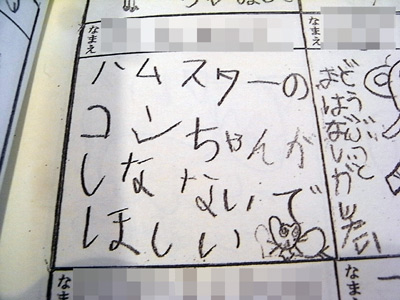 なまえ
なまえ
ハムスターの
コンちゃんが
しなないで
ほしい
どうぶつと
おはなしがしたい
なまえ
なまえ